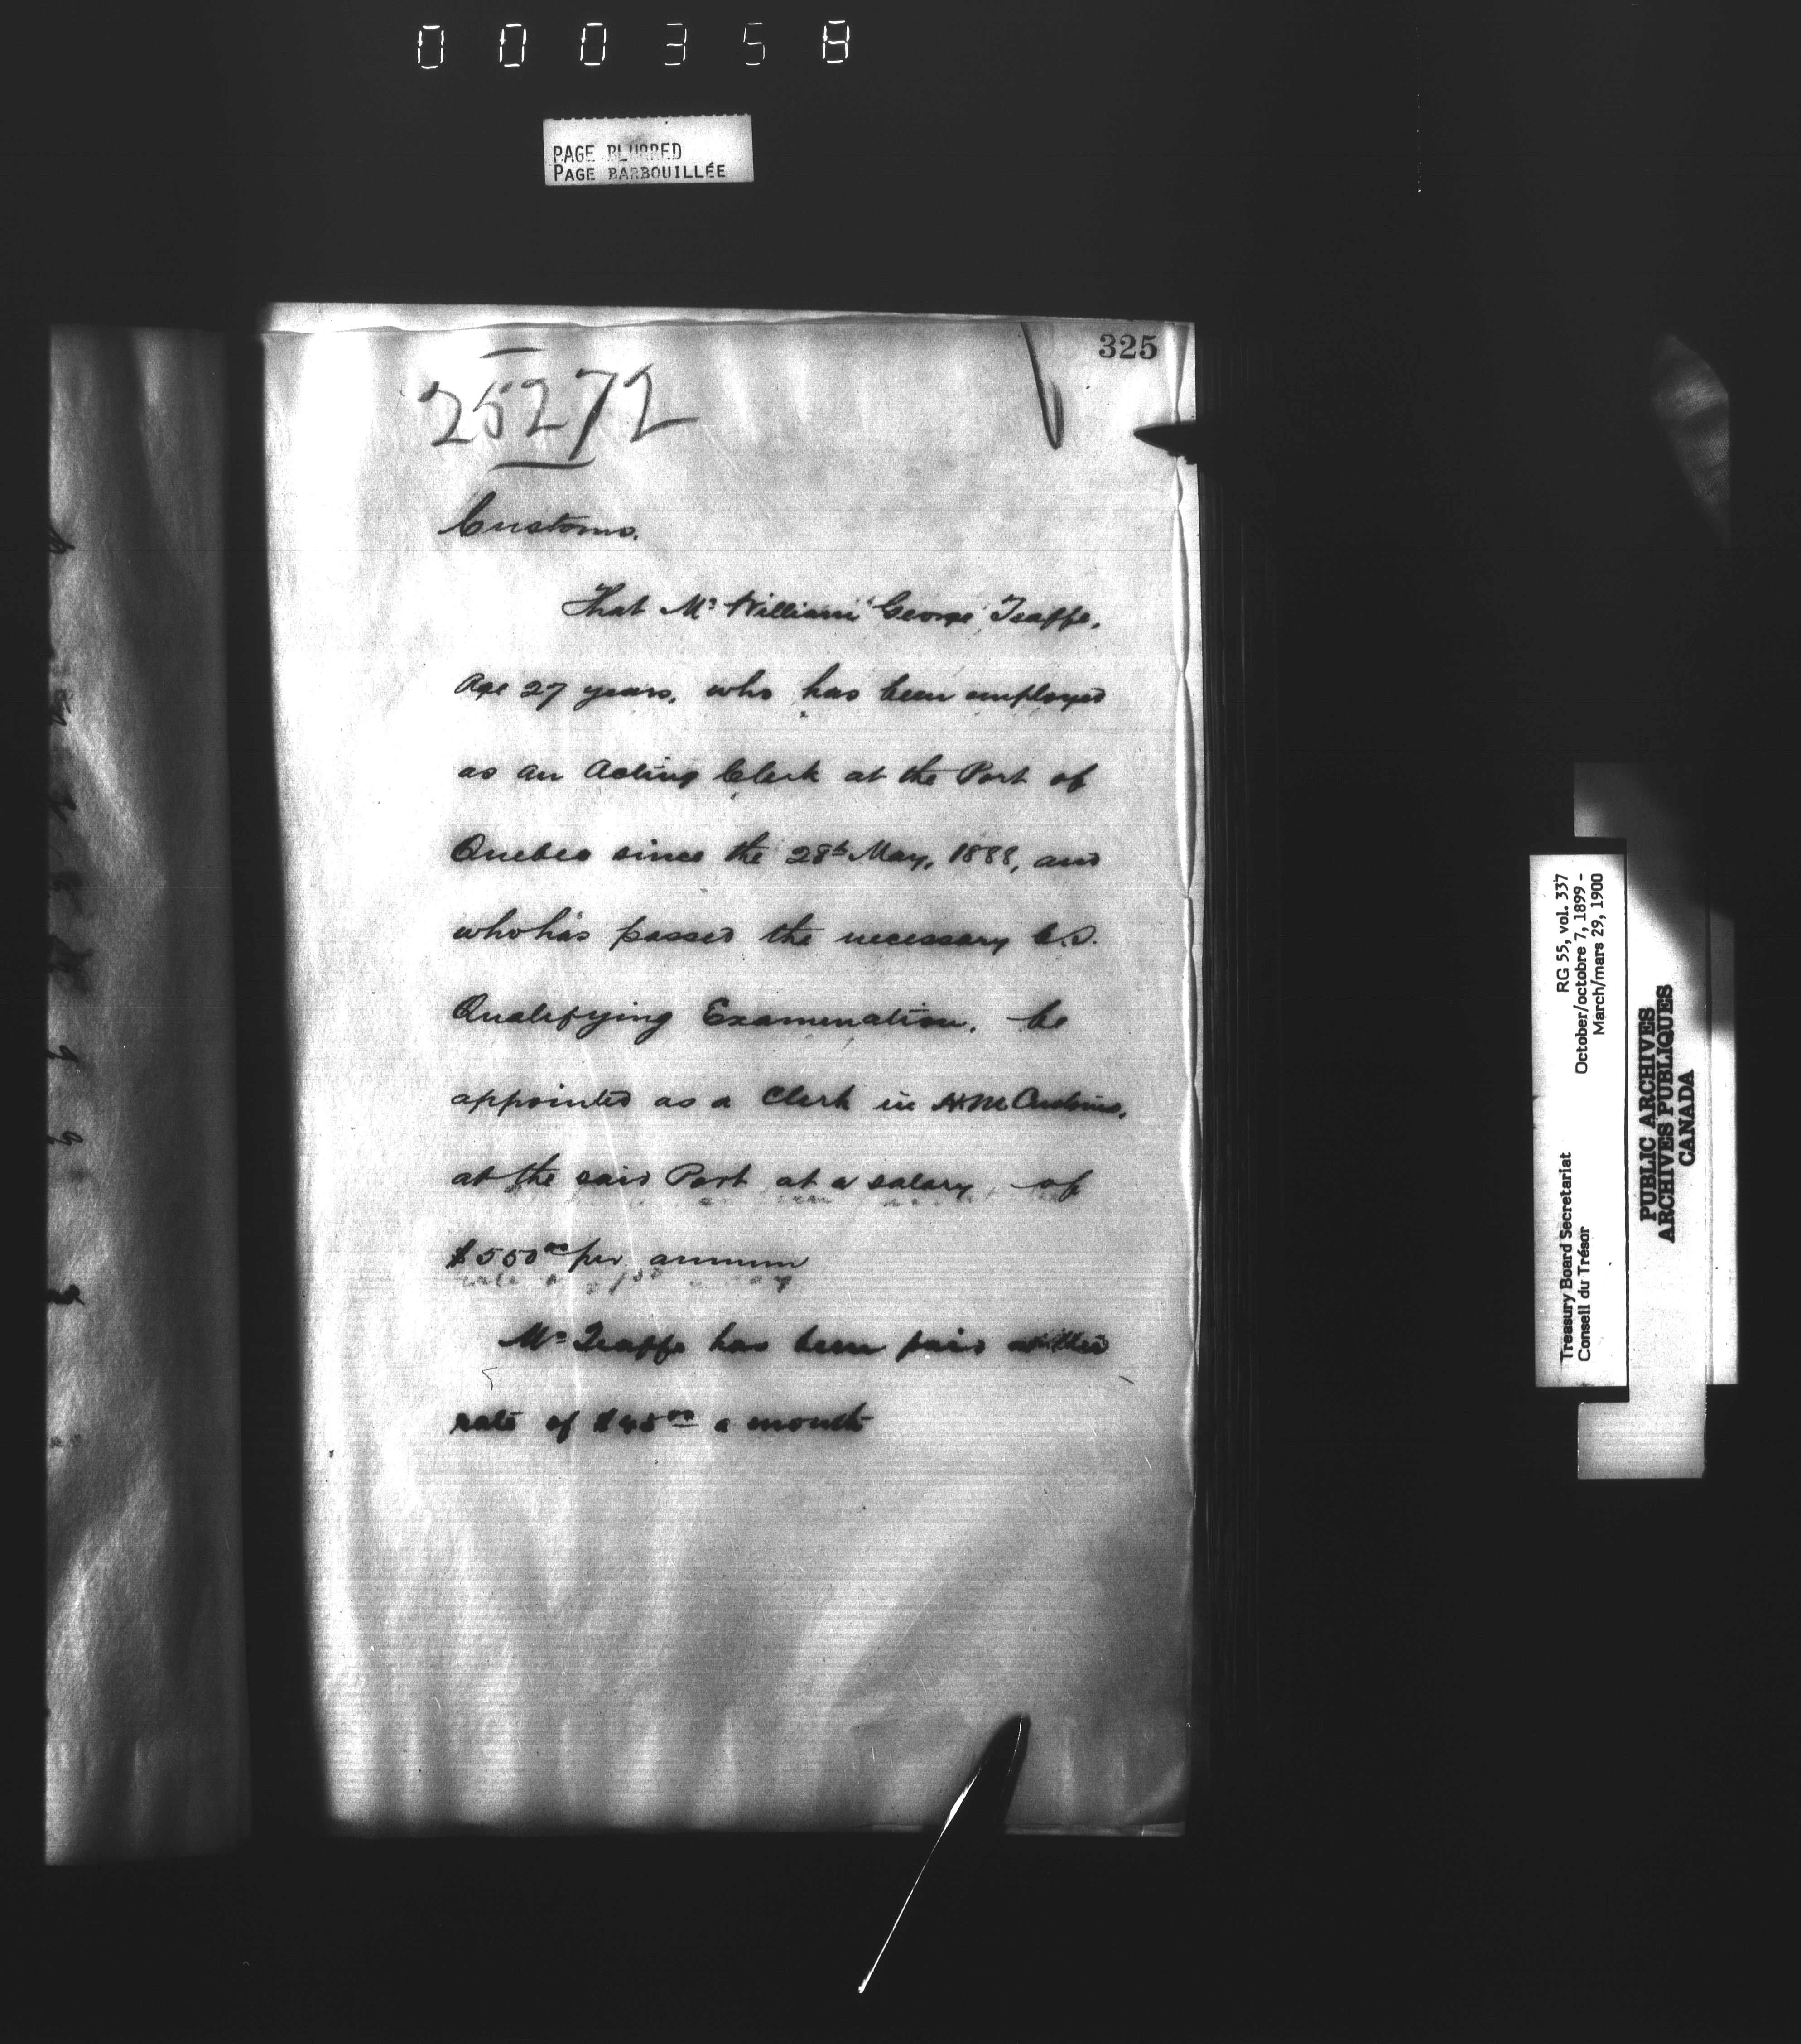 000358
PAGE BLURRED
PAGE BARBOUILLÉE
325
25272
Customs.
That Mr William George Teaffe,
Age 27 years, who has been employed
as an Acting Clerk at the Port of
Quebec since the 28th May, 1888, and
who has passed the necessary C.S.
Qualifying Examination, be
appointed as a Clerk in H.M. Customs,
at the said Port at a salary of
$550.00 per annum
Mr Teaffe has been paid at the
rate of $45.00 a month
Treasury Board Secretariat RG 55, vol. 337
Conseil du Trésor October/octobre 7, 1899 -
March/mars 29, 1900
PUBLIC ARCHIVES
ARCHIVES PUBLIQUES
CANADA